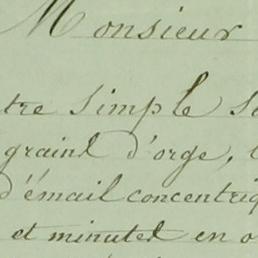 Monsieur
tre simple se
graine d'orge,
d'émail concentriq
et minutes en o